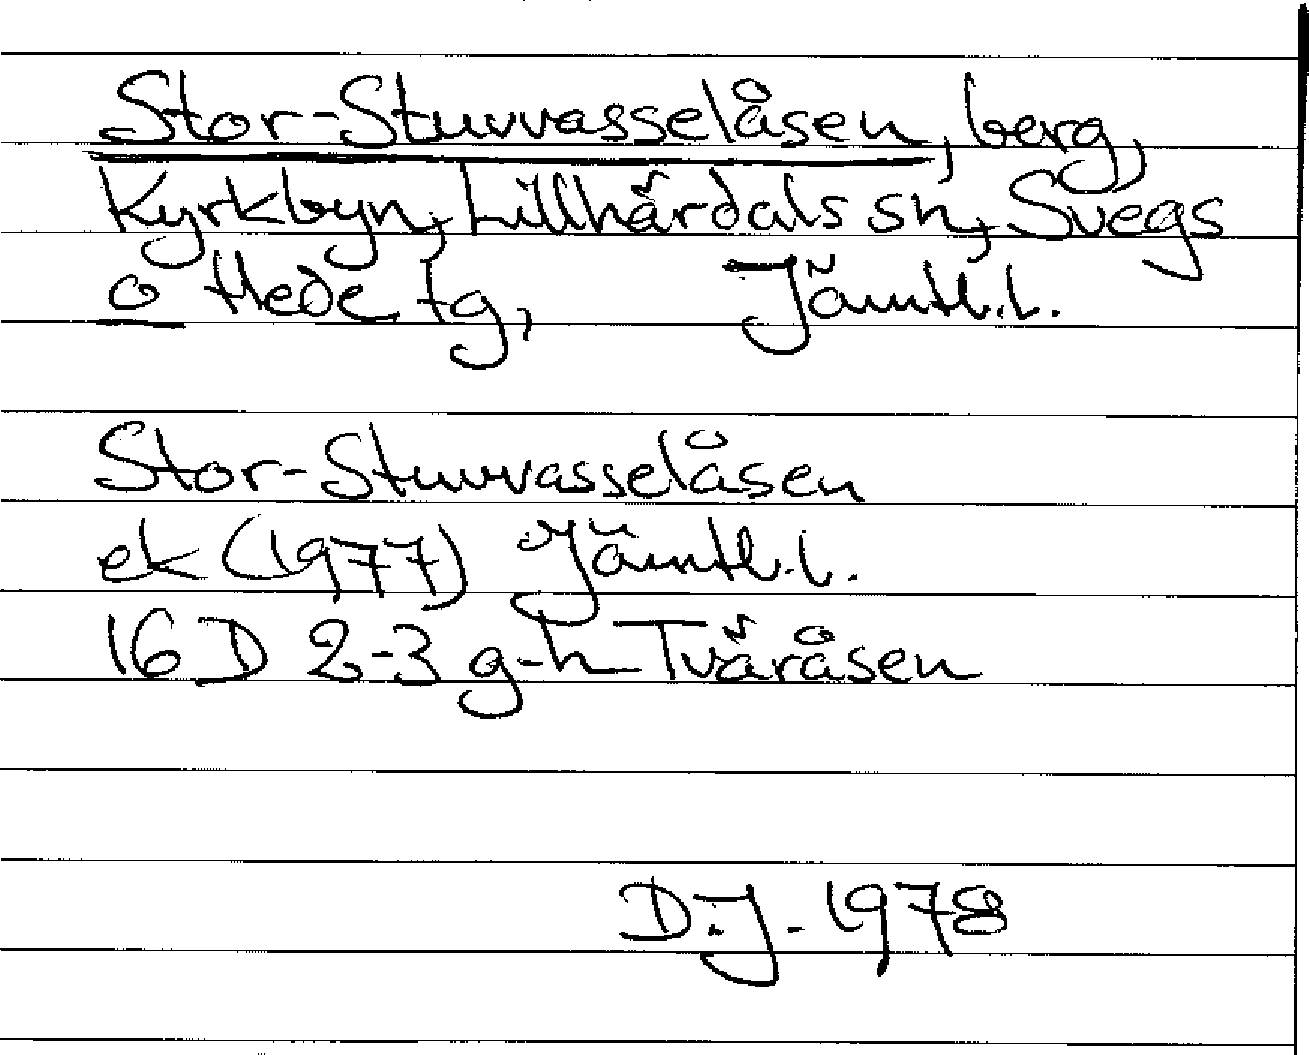 Stor-Stuvvasselåsen, berg,
Kyrkbyn, Lillhärdals sn, Svegs
o Hede tg, Jämtl.l.
Stor-Stuvvasselåsen
ek (1977) Jämtl.l.
16 D 2-3 g-h Tväråsen
D.J. 1978